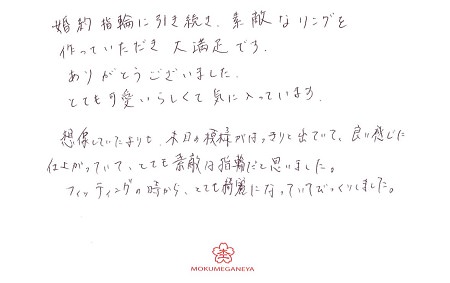 婚約指輪に引き続き、素敵なリングを
作っていただき大満足です。
ありがとうございました。
とても可愛いらしくて気に入っています。
想像していたよりも、木目の模様がはっきりと出ていて、良い感じに
仕上がっていて、とても素敵な指輪だと思いました。
フィッティングの時から、とても綺麗になっていてびっくりしました。
MOKUMEGANEYA